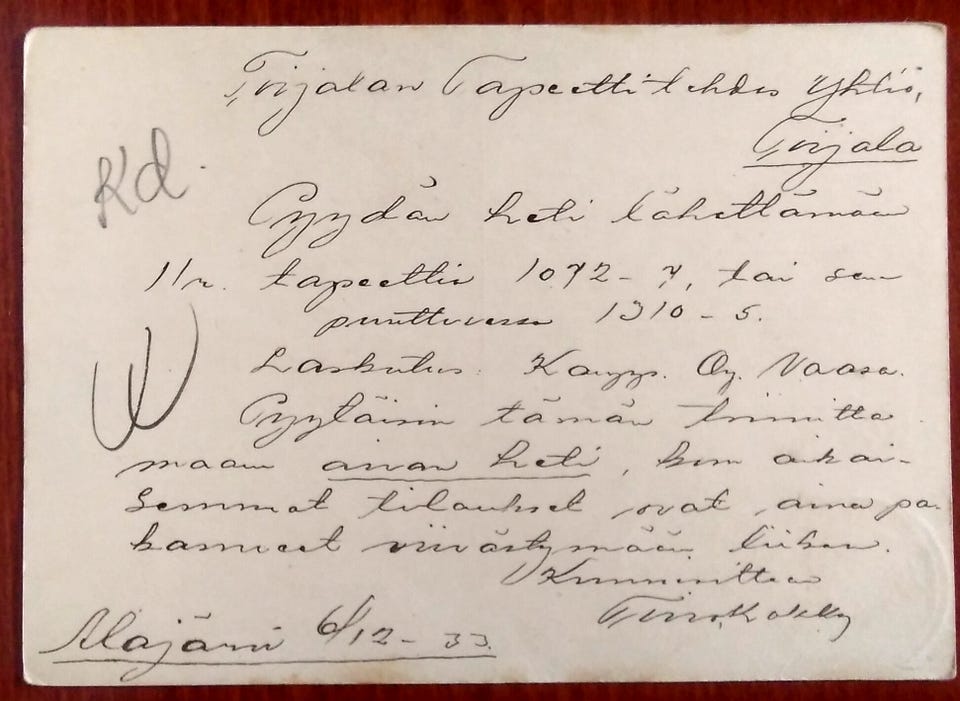 Tiijalan Tapeettitehdas Yhtiö,
Tiijala
Kd.
Pyydän heti lähettämään
11 r. tapeettia 1072-7, tai sen
puuttuessa 1310-5.
Laskutus: Kaupp. Oy. Vaasa.
Pyytäisin tämän toimitta
maan aivan heti, kun aikai-
semmat tilaukset ovat aina pa-
kanneet viivästymään liikaa.
Kunnioittaen
Alajärvi 6/12-33.